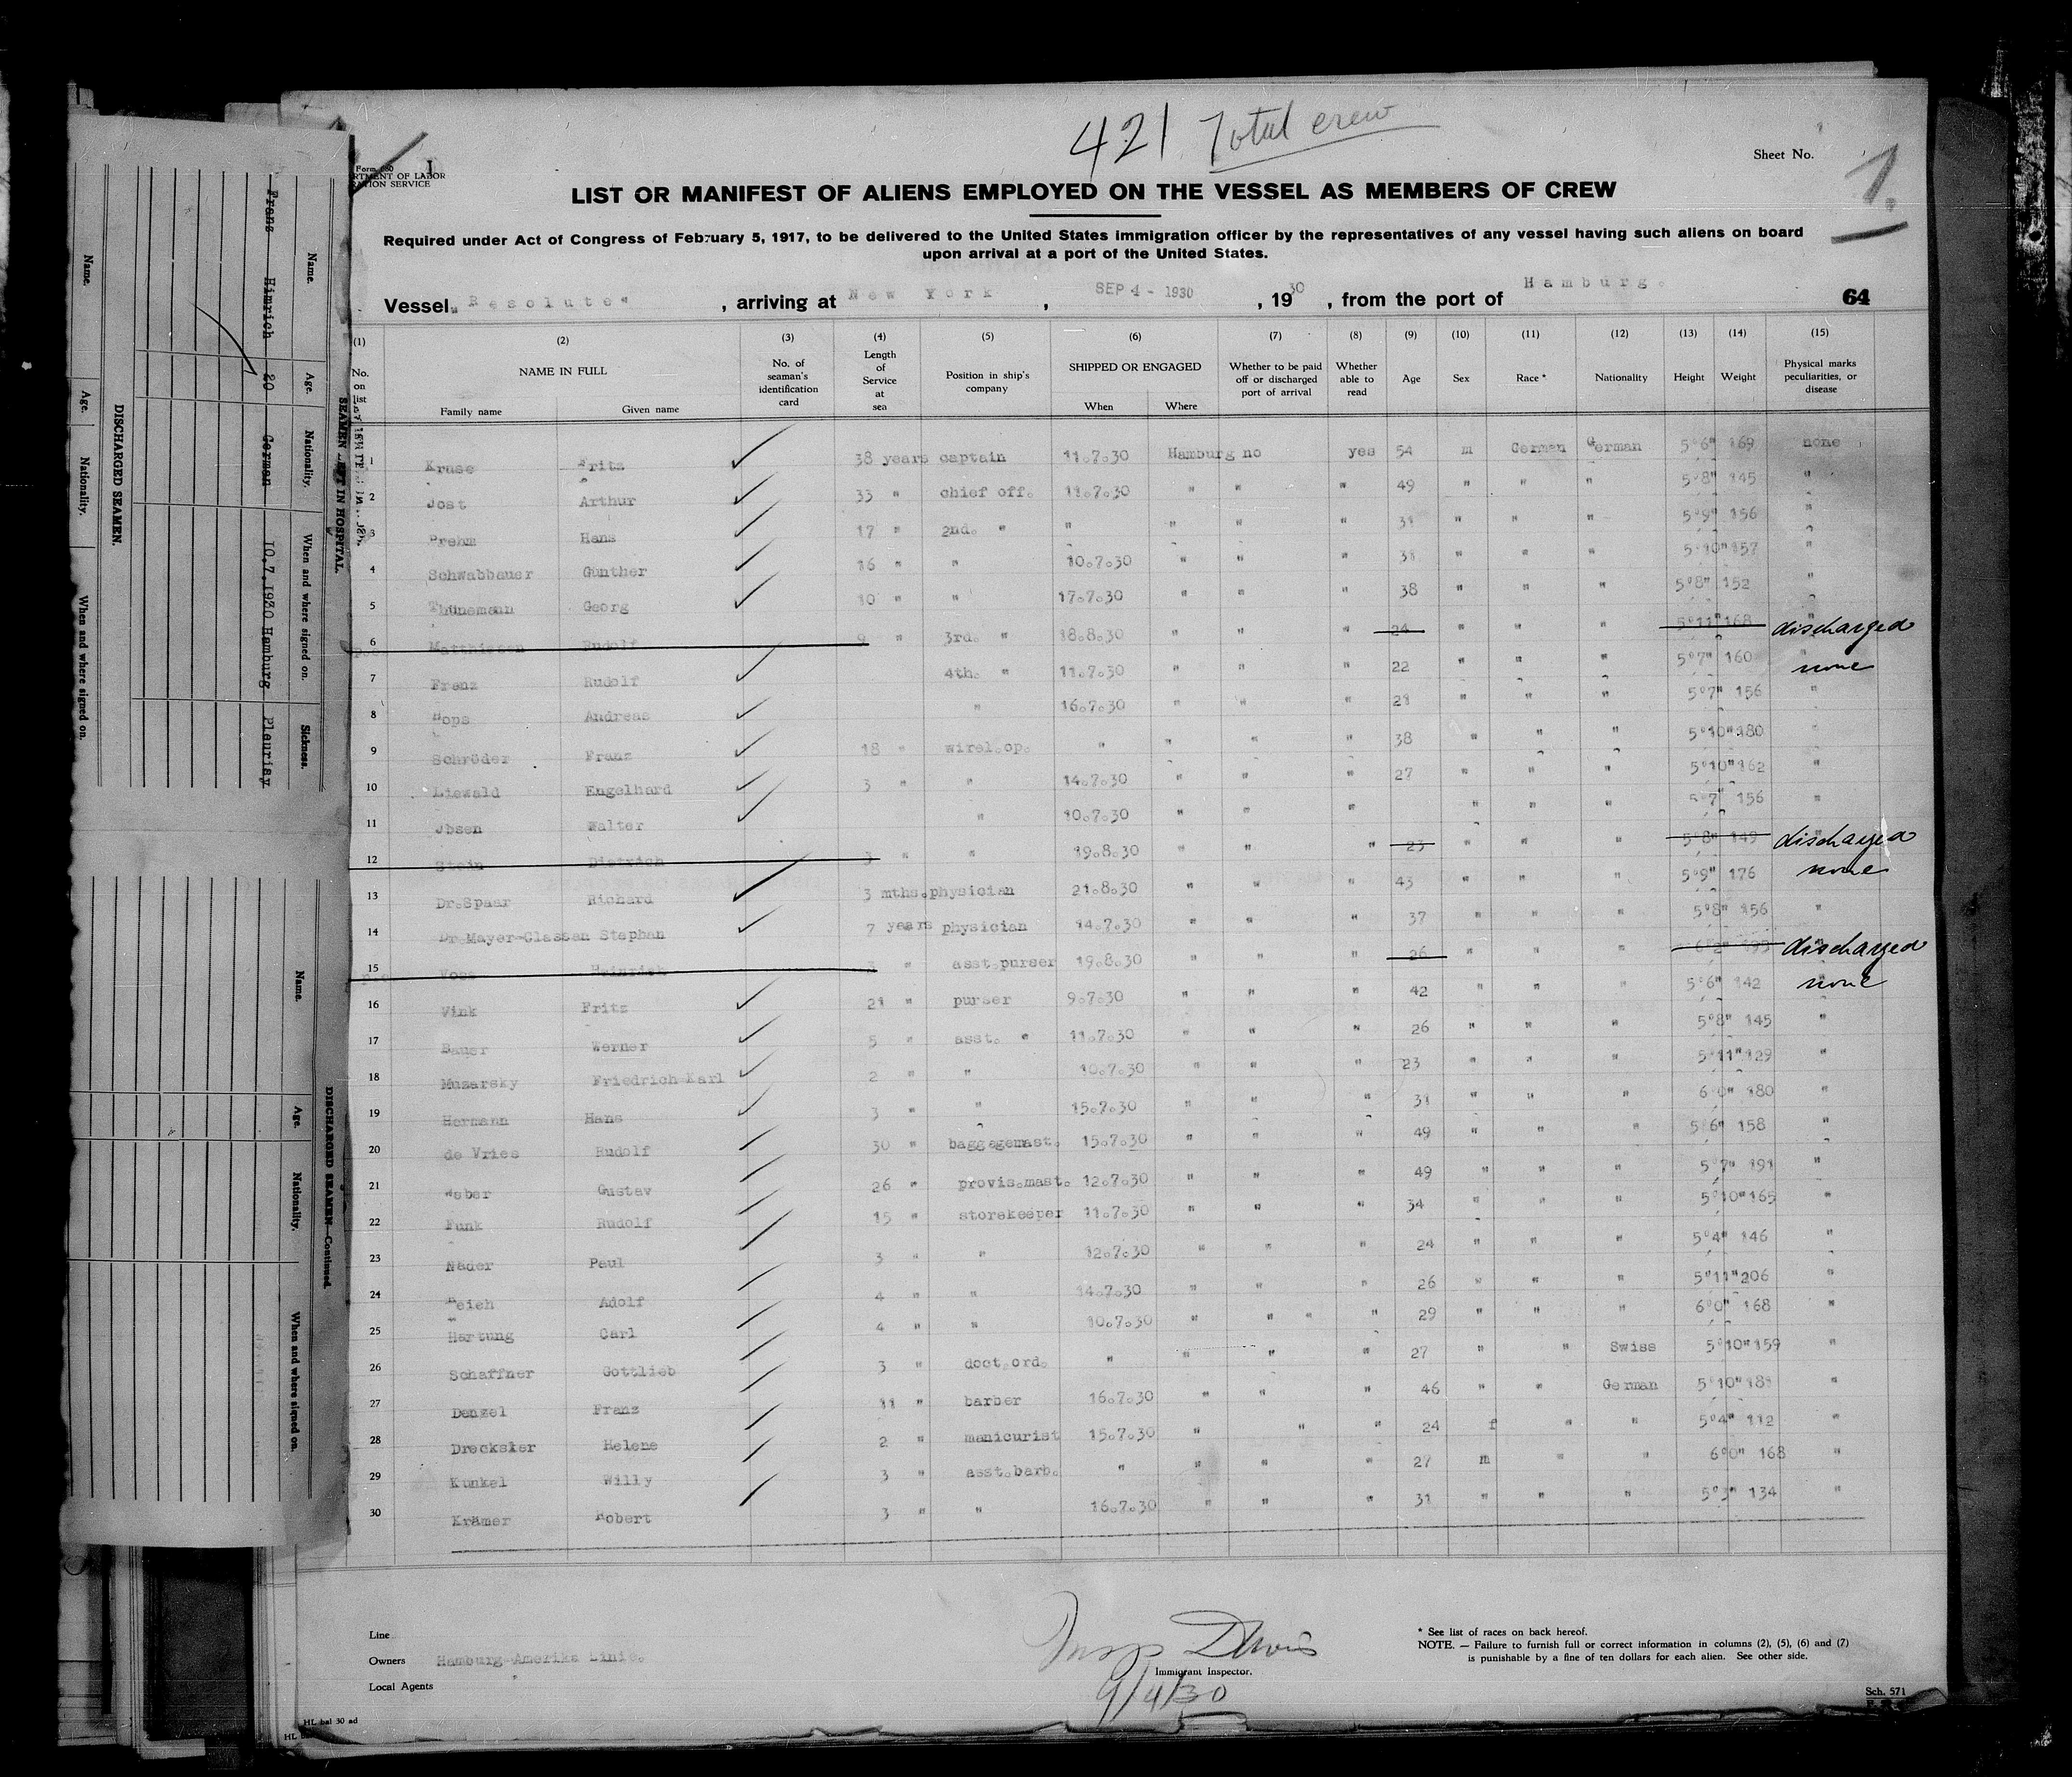 421 Total crew
Form 680
RTMENT OF LABOR
RATION SERVICE
I
Sheet No.
1.
LIST OR MANIFEST OF ALIENS EMPLOYED ON THE VESSEL AS MEMBERS OF CREW
Required under Act of Congress of February 5, 1917, to be delivered to the United States immigration officer by the representatives of any vessel having such aliens on board
upon arrival at a port of the United States.
Vessel "Resolute" , arriving at New York , SEP 4 - 1930 , 1930 , from the port of Hamburg. 64
(1) (2) (3) (4) (5) (6) (7) (8) (9) (10) (11) (12) (13) (14) (15)
No. on list
NAME IN FULL
Family name Given name
No. of seaman's identification card
Length of Service at sea
Position in ship's company
SHIPPED OR ENGAGED
When Where
Whether to be paid off or discharged port of arrival
Whether able to read
Age
Sex
Race *
Nationality
Height
Weight
Physical marks peculiarities, or disease
1 Kruse Fritz 38 years captain 11.7.30 Hamburg no yes 54 m German German 5'6" 169 none
2 Jost Arthur 33 " chief off. 11.7.30 " " " 49 " " " 5'8" 145 "
3 Prehm Hans 17 " 2nd. " " " " " 31 " " " 5'9" 156 "
4 Schwabbauer Günther 16 " " 10.7.30 " " " 31 " " " 5'10" 157 "
5 Thünemann Georg 10 " " 17.7.30 " " " 38 " " " 5'8" 152 "
6 Matthiesen Rudolf 9 " 3rd. " 18.8.30 " " " 24 " " " 5'11" 168 " discharged
7 Franz Rudolf 4th. " 11.7.30 " " " 22 " " " 5'7" 160 " none
8 Hops Andreas " 16.7.30 " " " 21 " " " 5'7" 156 "
9 Schröder Franz 18 " wirel.op. " " " " 38 " " " 5'10" 180 "
10 Liewald Engelhard 3 " " 14.7.30 " " " 27 " " " 5'10" 162 "
11 Jbsen Walter " 10.7.30 " " " " " " 5'7" 156 "
12 Stein Dietrich 3 " " 19.8.30 " " " 23 " " " 5'8" 149 " discharged
13 Dr.Spaar Richard 3 mths. physician 21.8.30 " " " 43 " " " 5'9" 176 none
14 Dr.Mayer-Classen Stephan 7 years physician 14.7.30 " " " 37 " " " 5'8" 156 "
15 Voss Heinrich 3 " asst.purser 19.8.30 " " " 26 " " " 6'2" 195 " discharged
16 Vink Fritz 21 " purser 9.7.30 " " " 42 " " " 5'6" 142 " none
17 Bauer Werner 5 " asst. " 11.7.30 " " " 26 " " " 5'8" 145 "
18 Muzarsky Friedrich-Karl 2 " " 10.7.30 " " " 23 " " " 5'11" 129 "
19 Hermann Hans 3 " " 15.7.30 " " " 31 " " " 6'0" 180 "
20 de Vries Rudolf 30 " baggagemast. 15.7.30 " " " 49 " " " 5'6" 158 "
21 Weber Gustav 26 " provis.mast. 12.7.30 " " " 49 " " " 5'7" 191 "
22 Funk Rudolf 15 " storekeeper 11.7.30 " " " 34 " " " 5'10" 165 "
23 Nader Paul 3 " " 12.7.30 " " " 24 " " " 5'4" 146 "
24 Adolf 4 " " 14.7.30 " " " 26 " " " 5'11" 206 "
25 Hartung Carl 4 " " 10.7.30 " " " " 29 " " " 6'0" 168 "
26 Schaffner Gottlieb 3 " doct.ord. " " " " 27 " " Swiss 5'10" 159 "
27 Denzel Franz 11 " barber 16.7.30 " " " 46 " " German 5'10" 181 "
28 Drecksler Helene 2 " manicurist 15.7.30 " " " 24 f " " 5'4" 112 "
29 Kunkel Willy 3 " asst.barb. " " " " 27 m " " 6'0" 168 "
30 Krämer Robert 3 " " 16.7.30 " " " 31 " " " 5'3" 134 "
Line
Owners Hamburg-Amerika Linie.
Local Agents
Insp Davis
Immigrant Inspector.
9/4/30
* See list of races on back hereof.
NOTE. — Failure to furnish full or correct information in columns (2), (5), (6) and (7)
is punishable by a fine of ten dollars for each alien. See other side.
Sch. 571
HL bal 30 ad
HL
SEAMEN LEFT IN HOSPITAL.
Name. Age. Nationality. When and where signed on. Sickness.
Franz Himrich 20 German 10.7.1930 Hamburg Pleurisy
DISCHARGED SEAMEN.
Name. Age. Nationality. When and where signed on.
DISCHARGED SEAMEN—Continued.
Name. Age. Nationality. When and where signed on.